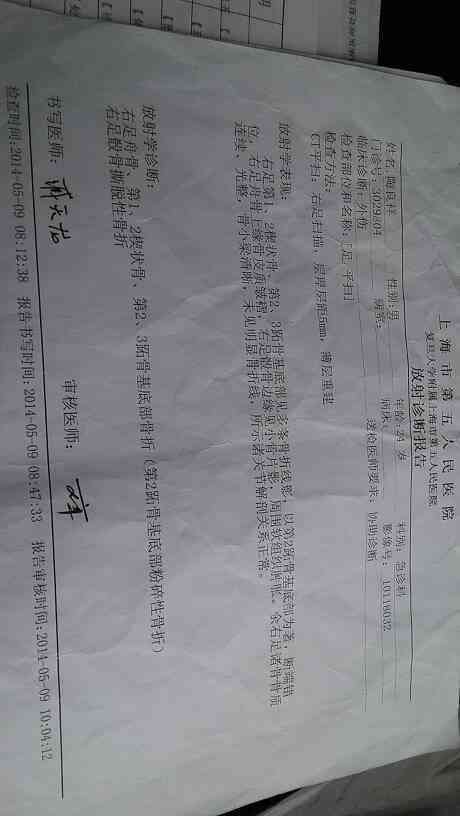 上海市第五人民医院
复旦大学附属上海市第五人民医院
放射诊断报告
姓名: 良样 性别:男 年龄: 岁 科别: 急诊科
门诊号:5029804 病室: 病床: 影像号: 10118032
临床诊断:外伤 送检医师要求: 协助诊断
检查部位和名称: 足 平扫
检查方法:
CT平扫: 右足扫描, 层厚层距5mm, 薄层重建
放射学表现:
右足第1、2楔状骨、第2、3跖骨基底部见多条骨折线影, 以第2跖骨基底部为著, 断端错
位, 右足舟骨上缘骨皮质皱褶, 右足骰骨边缘见小骨片影, 周围软组织肿胀。余右足诸骨骨质
连续、光整, 骨小梁清晰, 未见明显骨折线, 所示诸关节解剖关系正常。
放射学诊断:
右足舟骨、第1、2楔状骨、第2、3跖骨基底部骨折（第2跖骨基底部粉碎性骨折）
右足骰骨撕脱性骨折
书写医师: 审核医师:
检查时间:2014-05-09 08:12:38 报告书写时间:2014-05-09 08:47:33 报告审核时间:2014-05-09 10:04:12